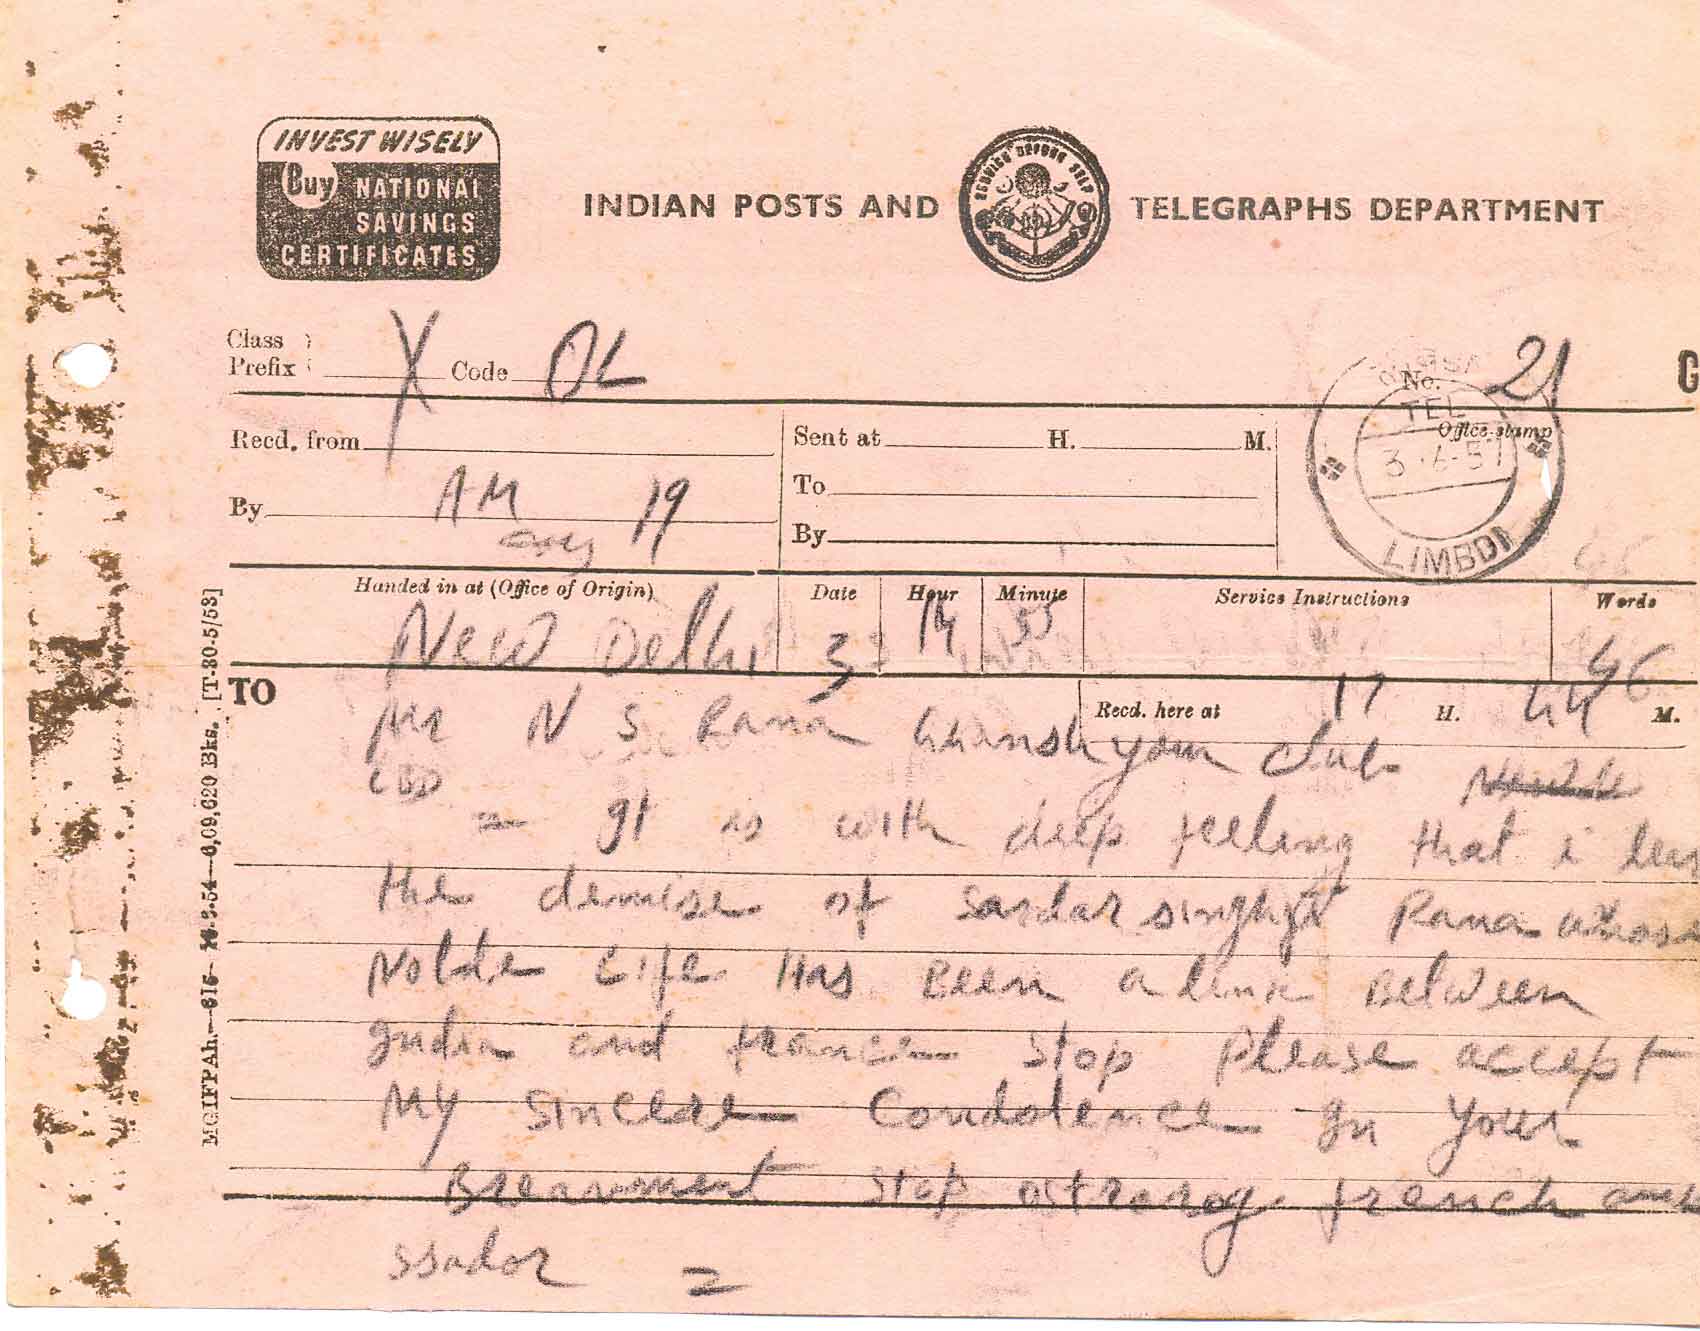 INVEST WISELY
Buy NATIONAL
SAVINGS
CERTIFICATES
INDIAN POSTS AND TELEGRAPHS DEPARTMENT
SERVICE BEFORE SELF
Class
Prefix X Code OL
No. 21
G
TEL
Office-stamp
3.6.57
LIMBDI
Recd. from
Sent at H. M.
To
By AM 19
By
Handed in at (Office of Origin) Date Hour Minute Service Instructions Words
New Delhi 3 14 46
TO
Recd. here at 17 H. 44 M.
Mr N S Rana Ghanshyam
LBD
= It is with deep feeling that i
the demise of Sardarsinghji Rana
Noble Life Has Been a link Between
India and france stop Please accept
My sincere Condolence In Your
Breavment stop ostrorog french
ssador =
MGIFPAh.—615— -54—6,09,620 Bks. [T-30-5/53]